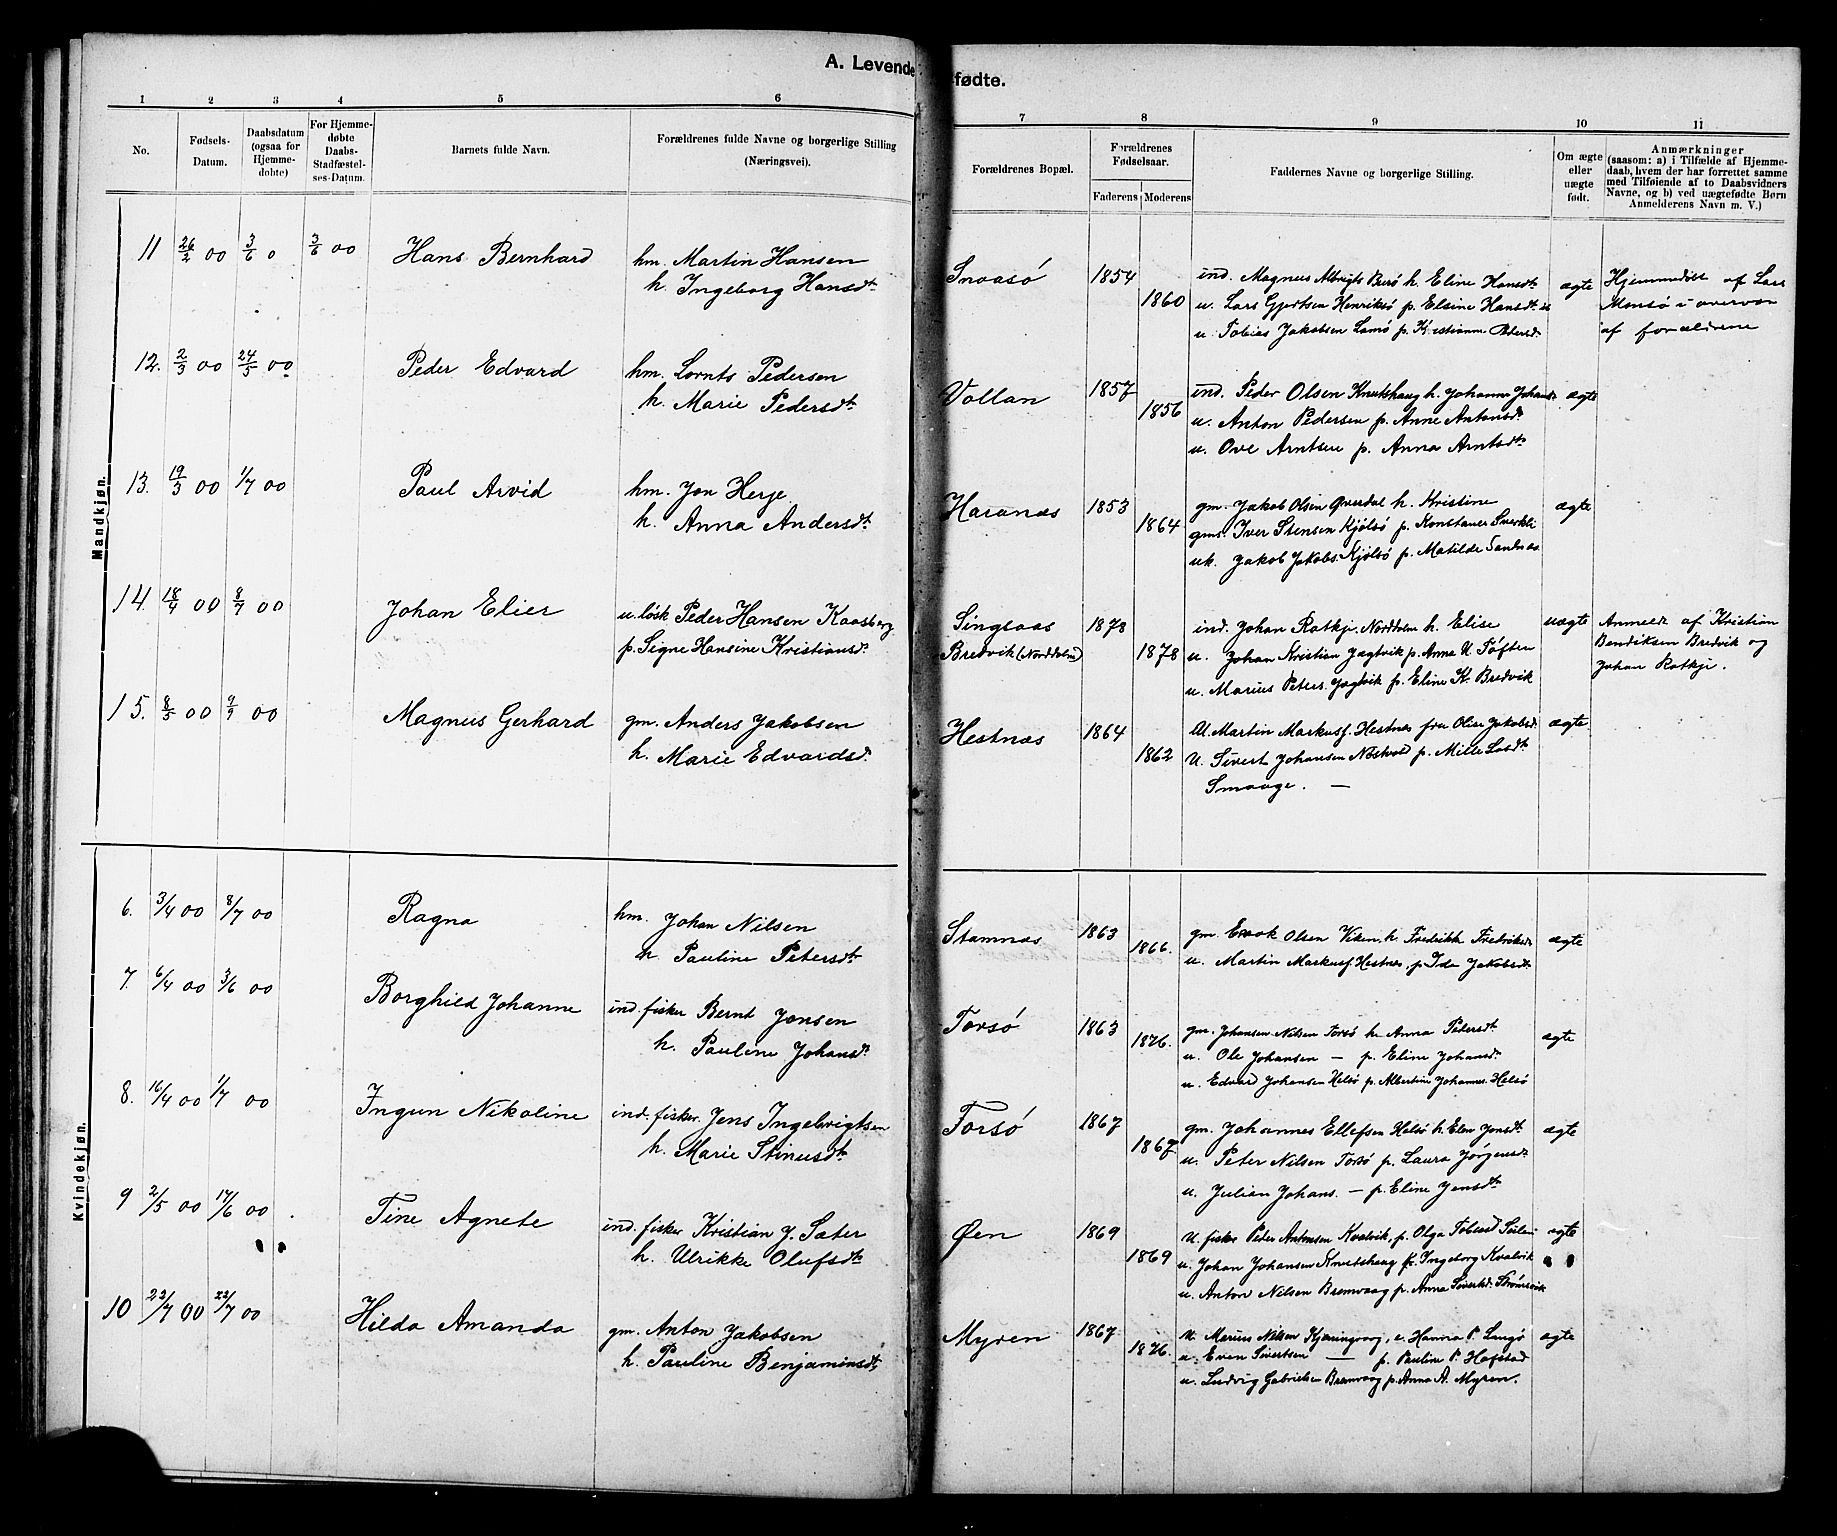 A. Levendefødte.
1 2 3 4 5 6 7 8 9 10 11
No.
Fødsels-
Datum.
Daabsdatum
(ogsaa for
Hjemme-
døbte)
For Hjemme-
døbte
Daabs-
Stadfæstel-
ses-Datum.
Barnets fulde Navn.
Forældrenes fulde Navne og borgerlige Stilling
(Næringsvei).
Forældrenes Bopæl.
Forældrenes
Fødselsaar.
Faderens Moderens
Faddernes Navne og borgerlige Stilling.
Om ægte
eller
uægte
født.
Anmærkninger
(saasom: a) i Tilfælde af Hjemme-
daab, hvem der har forrettet samme
med Tilføiende af to Daabsvidners
Navne, og b) ved uægtefødte Børn
Anmelderens Navn m. V.)
Mandkjøn.
11 26/2 00 3/6 0 3/6 00 Hans Bernhard hm. Martin Hansen
h. Ingeborg Hansdt.
1854
1860
ind. Magnus Albrigts Burø h. Eline Hansdt
u. Lars Gjertsen Henriksø p. Elsine Hansdt
u. Tobias Jakobsen Lamø p. Kristianne Petersd.
ægte
Hjemmedøbt af Lars
Monsø i overvær
af forældrene
12. 2/3 00 24/5 00 Peder Edvard hm. Lornts Pedersen
h. Marie Pedersdt.
Vollan 1857
1856
ind. Peder Olsen Knutshaug h. Johanna Johansd.
u. Anton Pedersen p. Anne Antonsdt
u. Ove Arntsen p. Anna Arntsdt.
ægte
13. 19/3 00 1/7 00 Paul Arvid hm. Jon Herje
h. Anna Andersdt.
Haranæs 1853
1864
gm. Jakob Olsen Øverdal h. Kristine
gms. Iver Stensen Kjølsø p. Konstanse Sverkli
uk. Jakob Jakobs. Kjølsø p. Matilde Sandnæs
ægte
14. 18/4 00 8/7 00 Johan Elier u. løsk Peder Hansen Kaasberg
p. Signe Hansine Kristiansd.
Singsaas 1878
Bredvik (Norddolm) 1878
ind. Johan Ratkje. Norddolm h. Elise
u. Johan Kristian Jægtvik p. Anna U. Tøften
u. Marius Peters. Jægtvik p. Eline K. Bredvik
uægte
Anmeldt af Kristian
Bendiksen Bredvik og
Johan Ratkje.
15. 8/5 00 9/9 00 Magnus Gerhard gm. Anders Jakobsen
h. Marie Edvardsd.
Hestnæs 1864
1862
U. Martin Markusf. Hestnes fru Oline Jakobsd.
U. Sivert Johansen Næstvold p. Mille Lasdt
Smaage. —
ægte
Kvindekjøn.
6. 3/4 00 8/7 00 Ragna hm. Johan Nilsen
h. Pauline Petersdt.
Stamnæs 1863
1866.
gm. Enok Olsen Viken, h. Fredrikk Fredriksd.
u. Martin Markusf. Hestnes, p. Ida Jakobsdt.
ægte
7. 6/4 00 3/6 00 Borghild Johanne ind. fisker Bernt Jonsen
h. Pauline Johansd.
Torsø 1863
1876.
gm. Johansen Nilsen Torsø h. Anna Petersdt
u. Ole Johansen — p. Eline Johansd.
u. Edvard Johansen Helsø p. Albertine Johannes. Helsø
ægte
8. 16/4 00 1/7 00 Ingun Nikoline ind. fisker Jens Ingebrigtsen
h. Marie Stinusdt.
Torsø 1867
1867
gm. Johannes Ellefsen Helsø h. Elen Jonsdt.
u. Peter Nilsen Torsø p. Laura Jørgensd.
u. Julian Johans. — p. Eline Jensdt.
ægte
9 2/5 00 17/6 00 Tine Agnete ind. fisker Kristian J. Sæter
h. Ulrikke Olufsdt.
Øen 1869
1869
U. fisker Peder Antonsen Kvalvik, p. Olga Tobiasd
u. Johan Johansen Knutshaug p. Ingeborg Kvalvik
u. Anton Nilsen Bremvaag p. Anna Sivertsd. Strømsvik
ægte
10 22/7 00 22/7 00 Hilda Amanda gm. Anton Jakobsen
h. Pauline Benjaminsdt.
Myren 1867
1876.
U. Marius Nilsen Kjøningvaag, e. Hanna P. Langø
u. Even Sivertsen — p. Pauline P. Hofstad
u. Ludvig Gabrielsen Bremvaag p. Anna A. Myren.
ægte